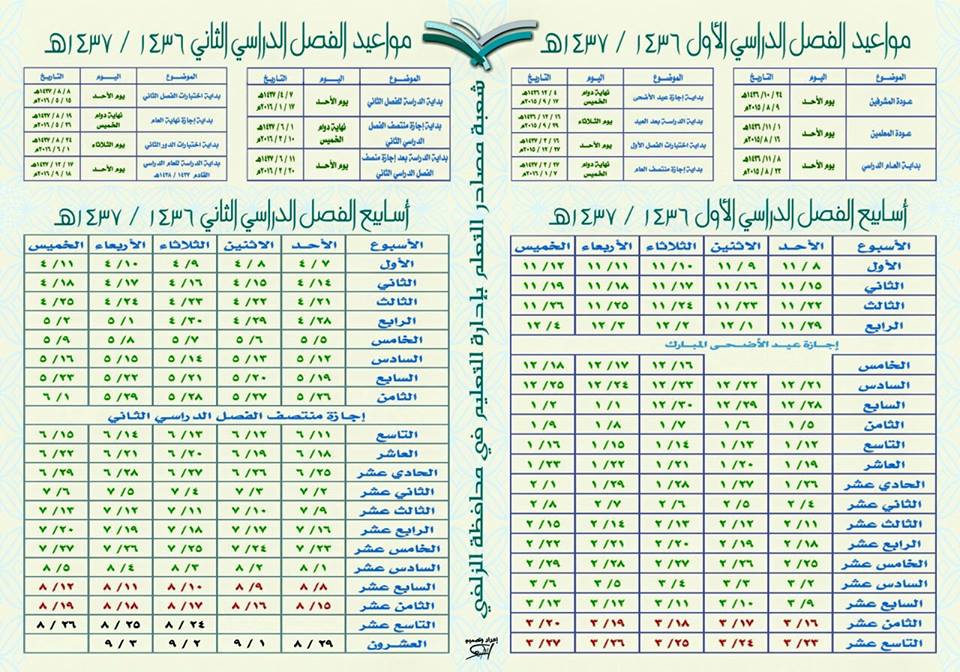 مواعيد الفصل الدراسي الأول ١٤٣٦ / ١٤٣٧هـ
الموضوع اليوم التاريخ
عودة المشرفين يوم الأحد ٢٤ / ١٠ / ١٤٣٦هـ
٩ / ٨ / ٢٠١٥م
عودة المعلمين يوم الأحد ١ / ١١ / ١٤٣٦هـ
١٦ / ٨ / ٢٠١٥م
بداية العام الدراسي يوم الأحد ٨ / ١١ / ١٤٣٦هـ
٢٣ / ٨ / ٢٠١٥م
الموضوع اليوم التاريخ
بداية إجازة عيد الأضحى نهاية دوام الخميس ٤ / ١٢ / ١٤٣٦هـ
١٧ / ٩ / ٢٠١٥م
بداية الدراسة بعد العيد يوم الثلاثاء ١٦ / ١٢ / ١٤٣٦هـ
٢٩ / ٩ / ٢٠١٥م
بداية اختبارات الفصل الأول يوم الأحد ١٦ / ٣ / ١٤٣٧هـ
٢٧ / ١٢ / ٢٠١٥م
بداية إجازة منتصف العام نهاية دوام الخميس ٢٧ / ٣ / ١٤٣٧هـ
٧ / ١ / ٢٠١٦م
أسابيع الفصل الدراسي الأول ١٤٣٦ / ١٤٣٧هـ
الأسبوع الأحد الاثنين الثلاثاء الأربعاء الخميس
الأول ٨ / ١١ ٩ / ١١ ١٠ / ١١ ١١ / ١١ ١٢ / ١١
الثاني ١٥ / ١١ ١٦ / ١١ ١٧ / ١١ ١٨ / ١١ ١٩ / ١١
الثالث ٢٢ / ١١ ٢٣ / ١١ ٢٤ / ١١ ٢٥ / ١١ ٢٦ / ١١
الرابع ٢٩ / ١١ ١ / ١٢ ٢ / ١٢ ٣ / ١٢ ٤ / ١٢
إجازة عيد الأضحى المبارك
الخامس ١٦ / ١٢ ١٧ / ١٢ ١٨ / ١٢
السادس ٢١ / ١٢ ٢٢ / ١٢ ٢٣ / ١٢ ٢٤ / ١٢ ٢٥ / ١٢
السابع ٢٨ / ١٢ ٢٩ / ١٢ ٣٠ / ١٢ ١ / ١ ٢ / ١
الثامن ٥ / ١ ٦ / ١ ٧ / ١ ٨ / ١ ٩ / ١
التاسع ١٢ / ١ ١٣ / ١ ١٤ / ١ ١٥ / ١ ١٦ / ١
العاشر ١٩ / ١ ٢٠ / ١ ٢١ / ١ ٢٢ / ١ ٢٣ / ١
الحادي عشر ٢٦ / ١ ٢٧ / ١ ٢٨ / ١ ٢٩ / ١ ١ / ٢
الثاني عشر ٤ / ٢ ٥ / ٢ ٦ / ٢ ٧ / ٢ ٨ / ٢
الثالث عشر ١١ / ٢ ١٢ / ٢ ١٣ / ٢ ١٤ / ٢ ١٥ / ٢
الرابع عشر ١٨ / ٢ ١٩ / ٢ ٢٠ / ٢ ٢١ / ٢ ٢٢ / ٢
الخامس عشر ٢٥ / ٢ ٢٦ / ٢ ٢٧ / ٢ ٢٨ / ٢ ٢٩ / ٢
السادس عشر ٢ / ٣ ٣ / ٣ ٤ / ٣ ٥ / ٣ ٦ / ٣
السابع عشر ٩ / ٣ ١٠ / ٣ ١١ / ٣ ١٢ / ٣ ١٣ / ٣
الثامن عشر ١٦ / ٣ ١٧ / ٣ ١٨ / ٣ ١٩ / ٣ ٢٠ / ٣
التاسع عشر ٢٣ / ٣ ٢٤ / ٣ ٢٥ / ٣ ٢٦ / ٣ ٢٧ / ٣
شعبة مصادر التعلم بإدارة التعليم في محافظة الزلفي
إعداد وتصميم
مواعيد الفصل الدراسي الثاني ١٤٣٦ / ١٤٣٧هـ
الموضوع اليوم التاريخ
بداية الدراسة للفصل الثاني يوم الأحد ٧ / ٤ / ١٤٣٧هـ
١٧ / ١ / ٢٠١٦م
بداية إجازة منتصف الفصل الدراسي الثاني نهاية دوام الخميس ١ / ٦ / ١٤٣٧هـ
١٠ / ٣ / ٢٠١٦م
بداية الدراسة بعد إجازة منتصف الفصل الدراسي الثاني يوم الأحد ١١ / ٦ / ١٤٣٧هـ
٢٠ / ٣ / ٢٠١٦م
الموضوع اليوم التاريخ
بداية اختبارات الفصل الثاني يوم الأحد ٨ / ٨ / ١٤٣٧هـ
١٥ / ٥ / ٢٠١٦م
بداية إجازة نهاية العام نهاية دوام الخميس ١٩ / ٨ / ١٤٣٧هـ
٢٦ / ٥ / ٢٠١٦م
بداية اختبارات الدور الثاني يوم الثلاثاء ٢٤ / ٨ / ١٤٣٧هـ
بداية الدراسة للعام الدراسي القادم ١٤٣٧ / ١٤٣٨هـ يوم الأحد ١٧ / ١٢ / ١٤٣٧هـ
١٨ / ٩ / ٢٠١٦م
أسابيع الفصل الدراسي الثاني ١٤٣٦ / ١٤٣٧هـ
الأسبوع الأحد الاثنين الثلاثاء الأربعاء الخميس
الأول ٧ / ٤ ٨ / ٤ ٩ / ٤ ١٠ / ٤ ١١ / ٤
الثاني ١٤ / ٤ ١٥ / ٤ ١٦ / ٤ ١٧ / ٤ ١٨ / ٤
الثالث ٢١ / ٤ ٢٢ / ٤ ٢٣ / ٤ ٢٤ / ٤ ٢٥ / ٤
الرابع ٢٨ / ٤ ٢٩ / ٤ ٣٠ / ٤ ١ / ٥ ٢ / ٥
الخامس ٥ / ٥ ٦ / ٥ ٧ / ٥ ٨ / ٥ ٩ / ٥
السادس ١٢ / ٥ ١٣ / ٥ ١٤ / ٥ ١٥ / ٥ ١٦ / ٥
السابع ١٩ / ٥ ٢٠ / ٥ ٢١ / ٥ ٢٢ / ٥ ٢٣ / ٥
الثامن ٢٦ / ٥ ٢٧ / ٥ ٢٨ / ٥ ٢٩ / ٥ ١ / ٦
إجازة منتصف الفصل الدراسي الثاني
التاسع ١١ / ٦ ١٢ / ٦ ١٣ / ٦ ١٤ / ٦ ١٥ / ٦
العاشر ١٨ / ٦ ١٩ / ٦ ٢٠ / ٦ ٢١ / ٦ ٢٢ / ٦
الحادي عشر ٢٥ / ٦ ٢٦ / ٦ ٢٧ / ٦ ٢٨ / ٦ ٢٩ / ٦
الثاني عشر ٢ / ٧ ٣ / ٧ ٤ / ٧ ٥ / ٧ ٦ / ٧
الثالث عشر ٩ / ٧ ١٠ / ٧ ١١ / ٧ ١٢ / ٧ ١٣ / ٧
الرابع عشر ١٦ / ٧ ١٧ / ٧ ١٨ / ٧ ١٩ / ٧ ٢٠ / ٧
الخامس عشر ٢٣ / ٧ ٢٤ / ٧ ٢٥ / ٧ ٢٦ / ٧ ٢٧ / ٧
السادس عشر ١ / ٨ ٢ / ٨ ٣ / ٨ ٤ / ٨ ٥ / ٨
السابع عشر ٨ / ٨ ٩ / ٨ ١٠ / ٨ ١١ / ٨ ١٢ / ٨
الثامن عشر ١٥ / ٨ ١٦ / ٨ ١٧ / ٨ ١٨ / ٨ ١٩ / ٨
التاسع عشر ٢٤ / ٨ ٢٥ / ٨ ٢٦ / ٨
العشرون ٢٩ / ٨ ١ / ٩ ٢ / ٩ ٣ / ٩